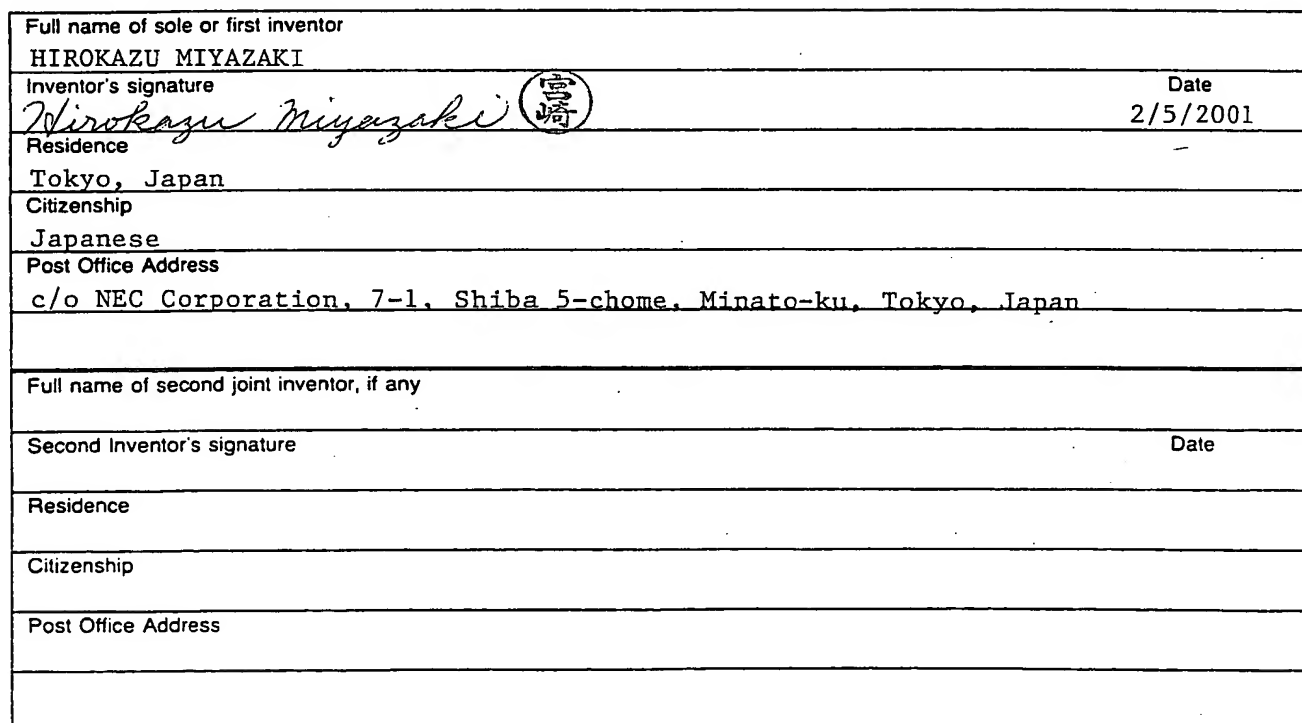 Full name of sole or first inventor
HIROKAZU MIYAZAKI
Inventor's signature Date
Hirokazu Miyazaki 宮崎 2/5/2001
Residence
Tokyo, Japan
Citizenship
Japanese
Post Office Address
c/o NEC Corporation, 7-1, Shiba 5-chome, Minato-ku, Tokyo, Japan
Full name of second joint inventor, if any
Second Inventor's signature Date
Residence
Citizenship
Post Office Address